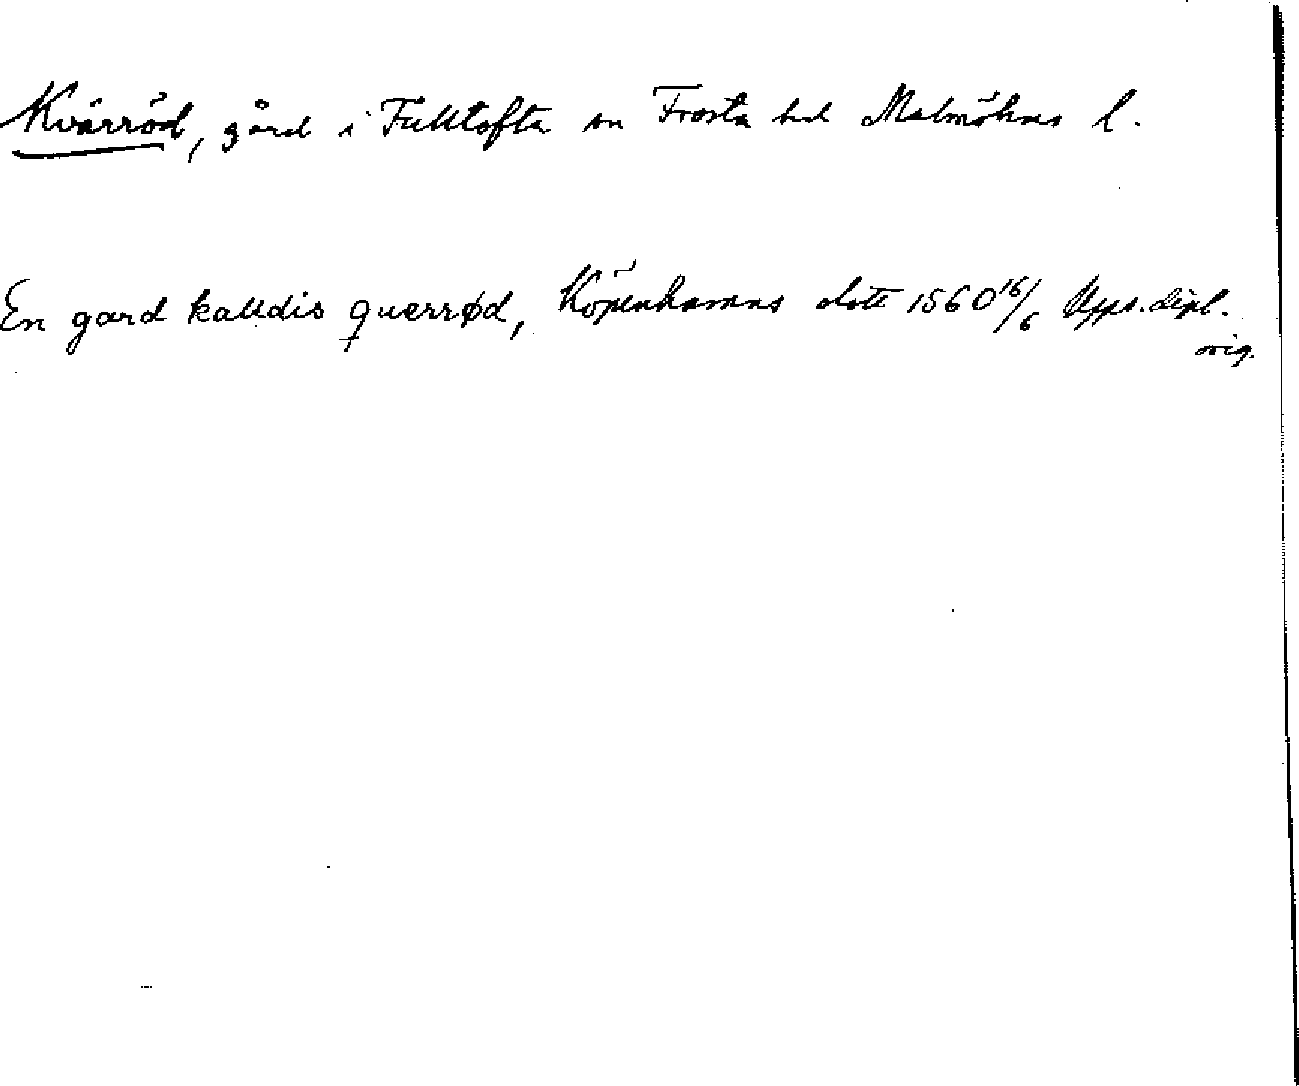 Kvärröd, gård i Fulltofta sn Frosta hd Malmöhus l.
En gard kalldis querrød, Köpenhamns slott 1560 16/6 Upps. dipl.
orig.